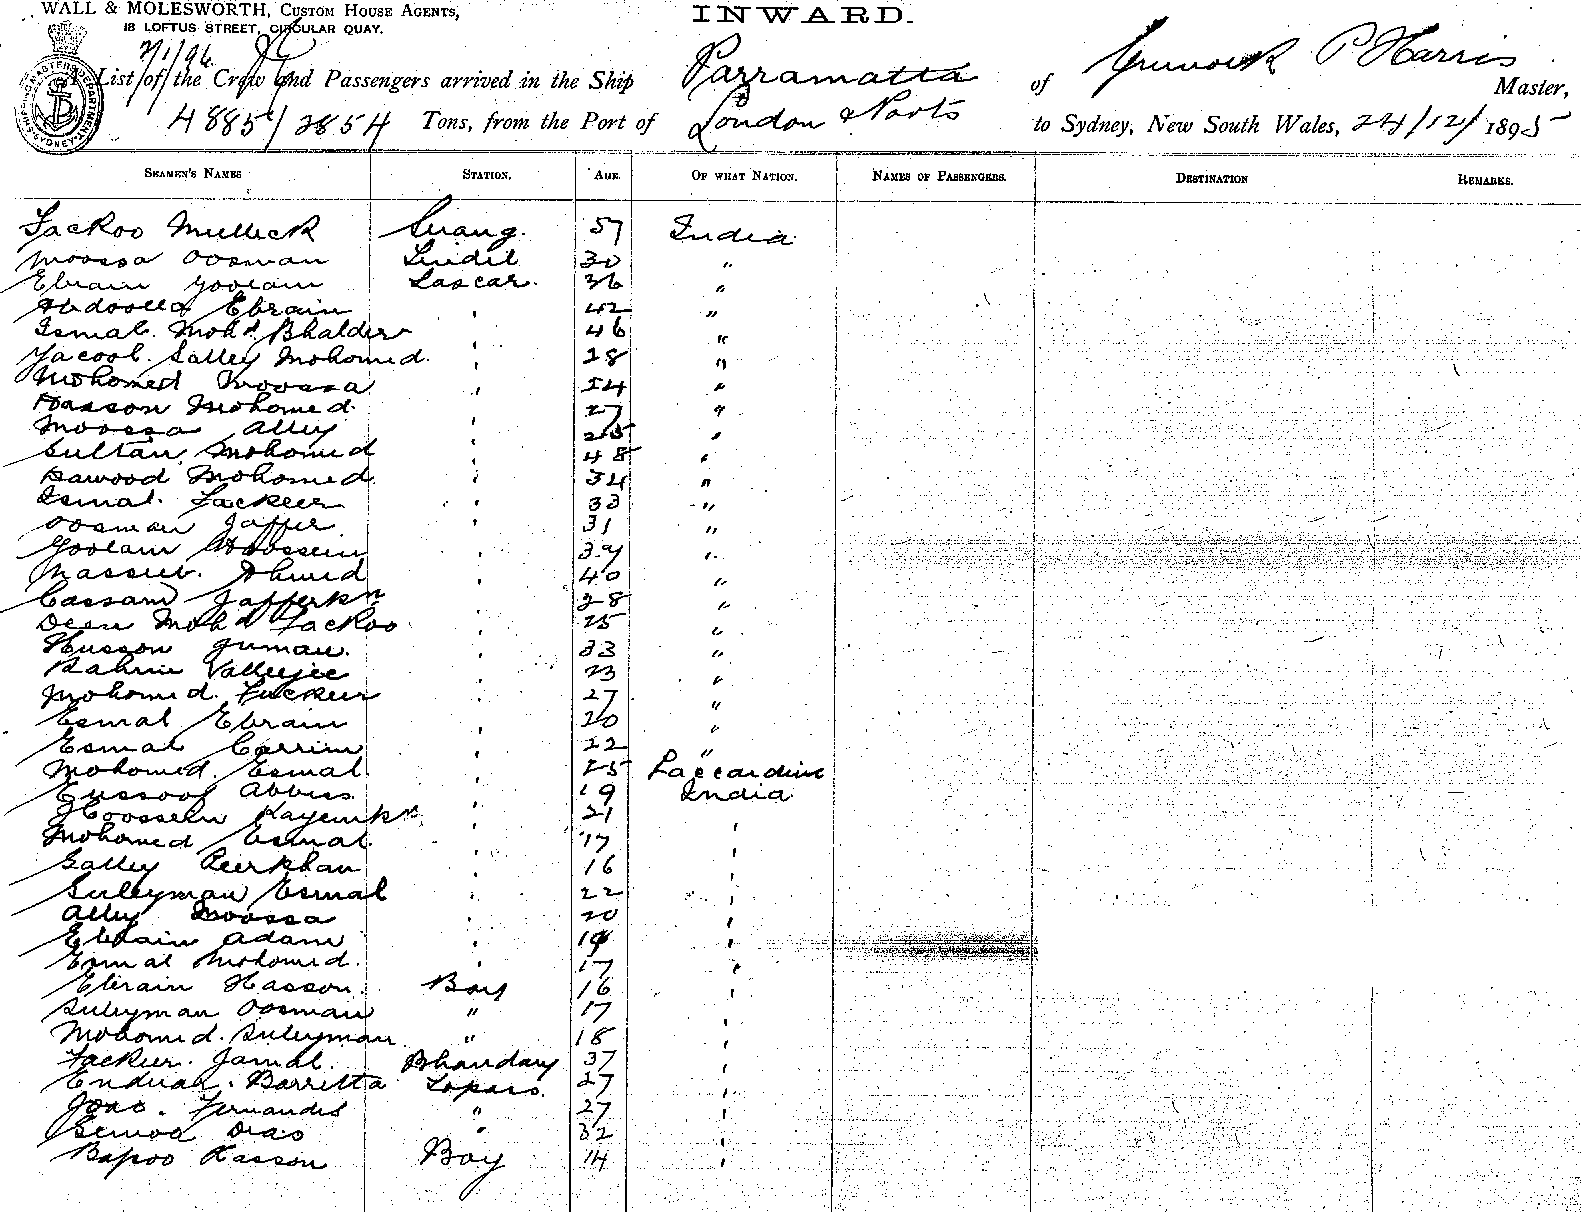 WALL & MOLESWORTH, CUSTOM HOUSE AGENTS,
18 LOFTUS STREET, CIRCULAR QUAY.
INWARD.
7/1/96
A List of the Crew and Passengers arrived in the Ship Parramatta of Greenock P Harris Master,
4885/2854 Tons, from the Port of London & Ports to Sydney, New South Wales, 24/12/1895
SEAMEN'S NAMES STATION. AGE. OF WHAT NATION. NAMES OF PASSENGERS. DESTINATION REMARKS.
Fackoo Mulleck Serang. 57 India
Moossa Oosman Tindil 30 "
Ebraim Goolam Lascar. 36 "
Abdoolla Ebraim " 42 "
Esmal. Mohd. Bhalder " 46 "
Yacoob. Salley Mohomed. " 28 "
Mohomed Moossa " 24 "
Hasson Mohomed. " 27 "
Moossa Alley " 25 "
Sultan Mohomed " 48 "
Dawood Mohomed " 34 "
Esmal. Fackeer " 33 "
Oosman Jaffer " 31 "
Goolam Hoossein " 39 "
Ahmed " 40 "
Cassam Jafferkn " 28 "
Deen Mohd Fackoo " 25 "
Husson Juman. " 33 "
Rahim Valleejee " 23 "
Mohomed. Fackeer " 27 "
Esmal Ebraim " 20 "
Esmal Carrim " 22 "
Mohomed. Esmal. " 25 Laccardive
Eussoof Abbiss " 19 India
Hoossein Kayemkn. " 21 "
Mohomed Esmal. " 17 "
Salley Peerkhan " 16 "
Suleyman Esmal " 22 "
Alley Moossa " 20 "
Ebraim Adam " 19 "
Esmal Mohomed. " 17 "
Ebraim Hasson. Boy 16 "
Suleyman Oosman " 17 "
Mohomed. Suleyman " 18 "
Fackeer. Jamal. Bhandary 37 "
Barretta Topass. 27 "
Joao. Fernandes " 27 "
Dias " 32 "
Bapoo Hasson Boy 14 "